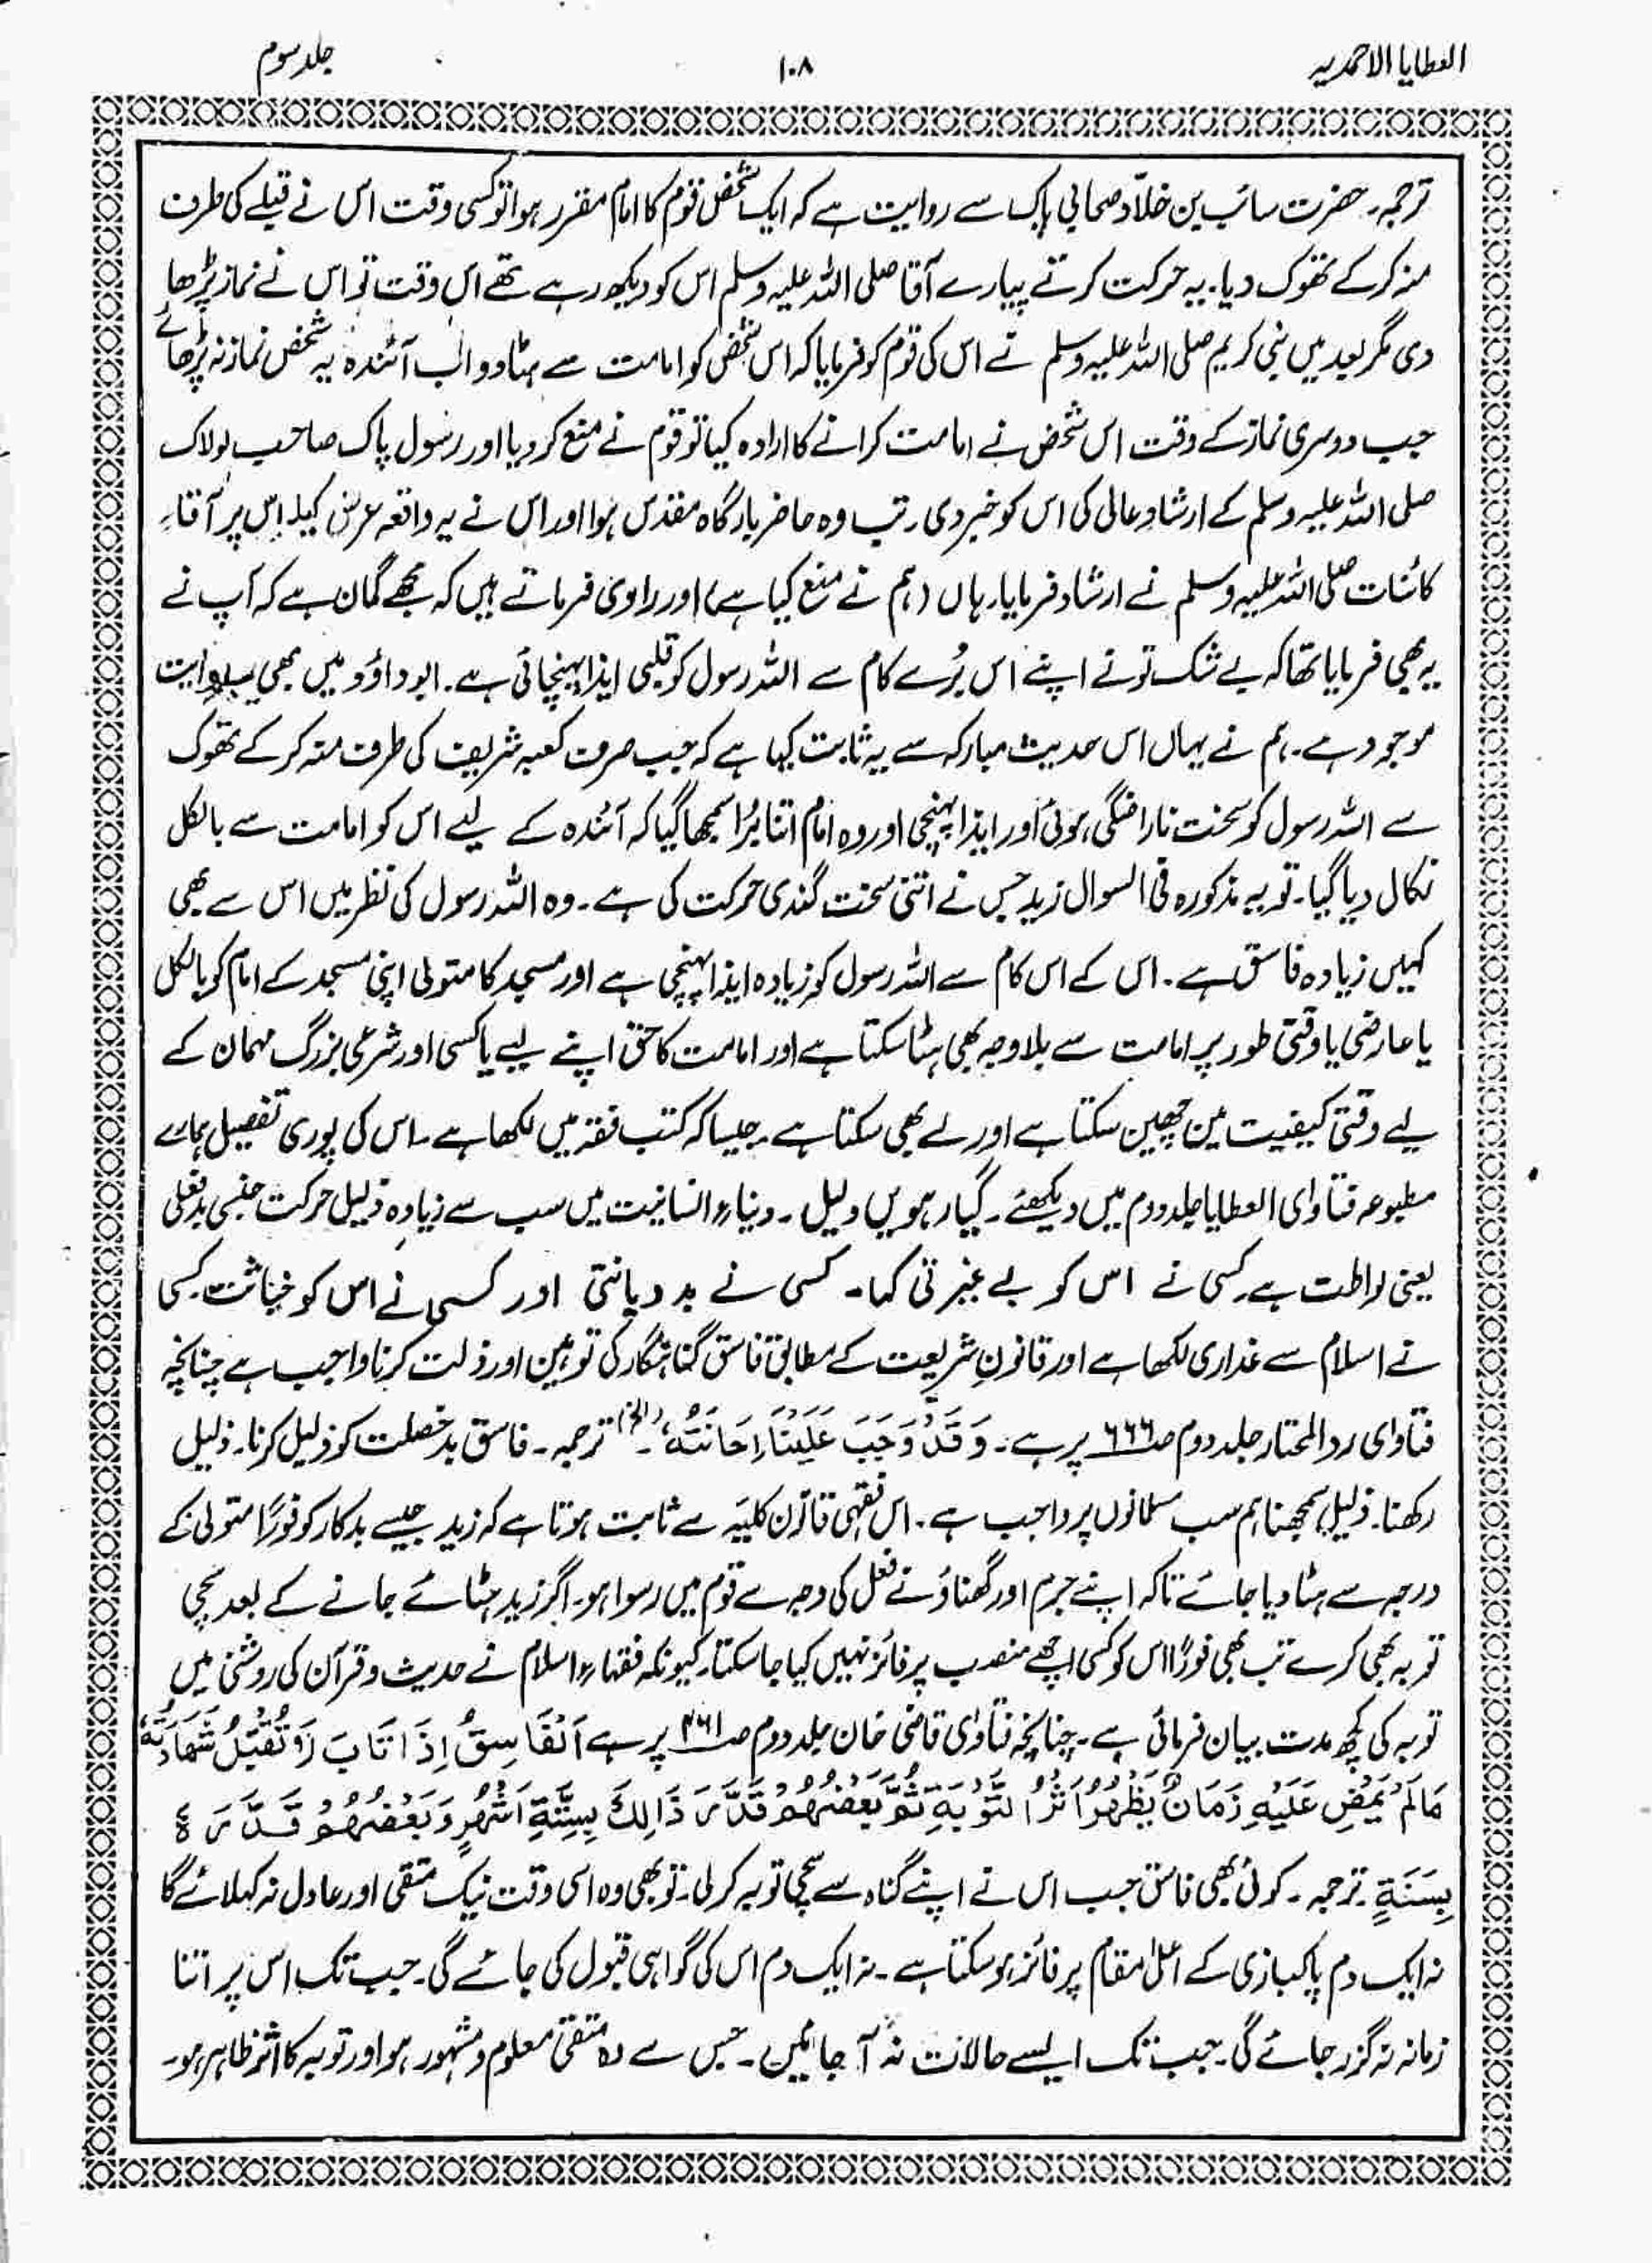 العطایا الاحمدیہ ۱۰۸ جلد سوم
ترجمہ۔ حضرت سائب بن خلاّد صحابی پاک سے روایت ہے کہ ایک شخص قوم کا امام مقرر ہوا تو کسی وقت اس نے قبلے کی طرف
منہ کر کے تھوک دیا۔ یہ حرکت کرتے پیارے آقا صلی اللہ علیہ وسلم اس کو دیکھ رہے تھے اس وقت تو اس نے نماز پڑھا
دی مگر بعد میں نبی کریم صلی اللہ علیہ وسلم نے اس کی قوم کو فرمایا کہ اس شخص کو امامت سے ہٹا دو اب آئندہ یہ شخص نماز نہ پڑھائے
جب دوسری نماز کے وقت اس شخص نے امامت کرانے کا ارادہ کیا تو قوم نے منع کر دیا اور رسول پاک صاحب لولاک
صلی اللہ علیہ وسلم کے ارشادِ عالی کی اس کو خبر دی۔ تب وہ حاضر بارگاہ مقدس ہوا اور اس نے یہ واقعہ عرض کیا۔ اس پر آقاءِ
کائنات صلی اللہ علیہ وسلم نے ارشاد فرمایا۔ ہاں (ہم نے منع کیا ہے) اور راوی فرماتے ہیں کہ مجھے گمان ہے کہ آپ نے
یہ بھی فرمایا تھا کہ بے شک تو نے اپنے اس بُرے کام سے اللہ رسول کو قلبی ایذا پہنچائی ہے۔ ابو داؤد میں بھی یہ روایت
موجود ہے۔ ہم نے یہاں اس حدیث مبارکہ سے یہ ثابت کیا ہے کہ جب صرف کعبہ شریف کی طرف منہ کر کے تھوک
سے اللہ رسول کو سخت ناراضگی ہوئی اور ایذا پہنچی اور وہ امام اتنا بُرا سمجھا گیا کہ آئندہ کے لیے اس کو امامت سے بالکل
نکال دیا گیا۔ تو یہ مذکورہ فی السوال زید جس نے اتنی سخت گندی حرکت کی ہے۔ وہ اللہ رسول کی نظر میں اس سے بھی
کہیں زیادہ فاسق ہے۔ اس کے اس کام سے اللہ رسول کو زیادہ ایذا پہنچی ہے اور مسجد کا متولی اپنی مسجد کے امام کو بالکل
یا عارضی یا وقتی طور پر امامت سے بلا وجہ بھی ہٹا سکتا ہے اور امامت کا حق اپنے لیے یا کسی اور شرعی بزرگ مہمان کے
لیے وقتی کیفیت میں چھین سکتا ہے اور لے بھی سکتا ہے۔ جیسا کہ کتب فقہ میں لکھا ہے۔ اس کی پوری تفصیل ہمارے
مطبوعہ فتاوای العطایا جلد دوم میں دیکھئے۔ گیارہویں دلیل۔ دنیاءِ انسانیت میں سب سے زیادہ ذلیل حرکت جنسی بدفعلی
یعنی لواطت ہے۔ کسی نے اس کو بے غیرتی کہا۔ کسی نے بد دیانتی اور کسی نے اس کو خباثت۔ کسی
نے اسلام سے غداری لکھا ہے اور قانونِ شریعت کے مطابق فاسق گناہگار کی توہین اور ذلت کرنا واجب ہے چنانچہ
فتاوای رد المختار جلد دوم صہ ۶۶۶ پر ہے۔ وَقَدْ وَجَبَ عَلَیْنَا اِحَانَتُہٗ۔ (الخ) ترجمہ۔ فاسق بد خصلت کو ذلیل کرنا۔ ذلیل
رکھنا۔ ذلیل سمجھنا ہم سب مسلمانوں پر واجب ہے۔ اس فقہی قانون کلیّہ سے ثابت ہوتا ہے کہ زید جیسے بدکار کو فورًا متولی کے
درجہ سے ہٹا دیا جائے تاکہ اپنے جرم اور گھناؤنے فعل کی وجہ سے قوم میں رسوا ہو۔ اگر زید ہٹائے جانے کے بعد سچی
توبہ بھی کرے تب بھی فورًا اس کو کسی اچھے منصب پر فائز نہیں کیا جا سکتا۔ کیونکہ فقہاءِ اسلام نے حدیث و قرآن کی روشنی میں
توبہ کی کچھ مدت بیان فرمائی ہے۔ چنانچہ فتاوای قاضی خان جلد دوم صہ ۴۶۱ پر ہے اَلْفَاسِقُ اِذَا تَابَ لَا تُقْبَلُ شَھَادَتُہٗ
مَالَمْ یَمْضِ عَلَیْہِ زَمَانٌ یَظْھَرُ اَثَرُ التَّوْبَۃِ ثُمَّ بَعْضُھُمْ قَدَّرَ ذَالِكَ بِسِتَّۃِ اَشْھُرٍ وَبَعْضُھُمْ قَدَّرَہٗ
بِسَنَۃٍ۔ ترجمہ۔ کوئی بھی فاسق جب اس نے اپنے گناہ سے سچی توبہ کر لی۔ تو بھی وہ اسی وقت نیک متقی اور عادل نہ کہلائے گا
نہ ایک دم پاکبازی کے اعلیٰ مقام پر فائز ہو سکتا ہے۔ نہ ایک دم اس کی گواہی قبول کی جائے گی۔ جب تک اس پر اتنا
زمانہ نہ گزر جائے گی۔ جب تک ایسے حالات نہ آ جائیں۔ جس سے وہ متقی معلوم و مشہور ہو اور توبہ کا اثر ظاہر ہو۔